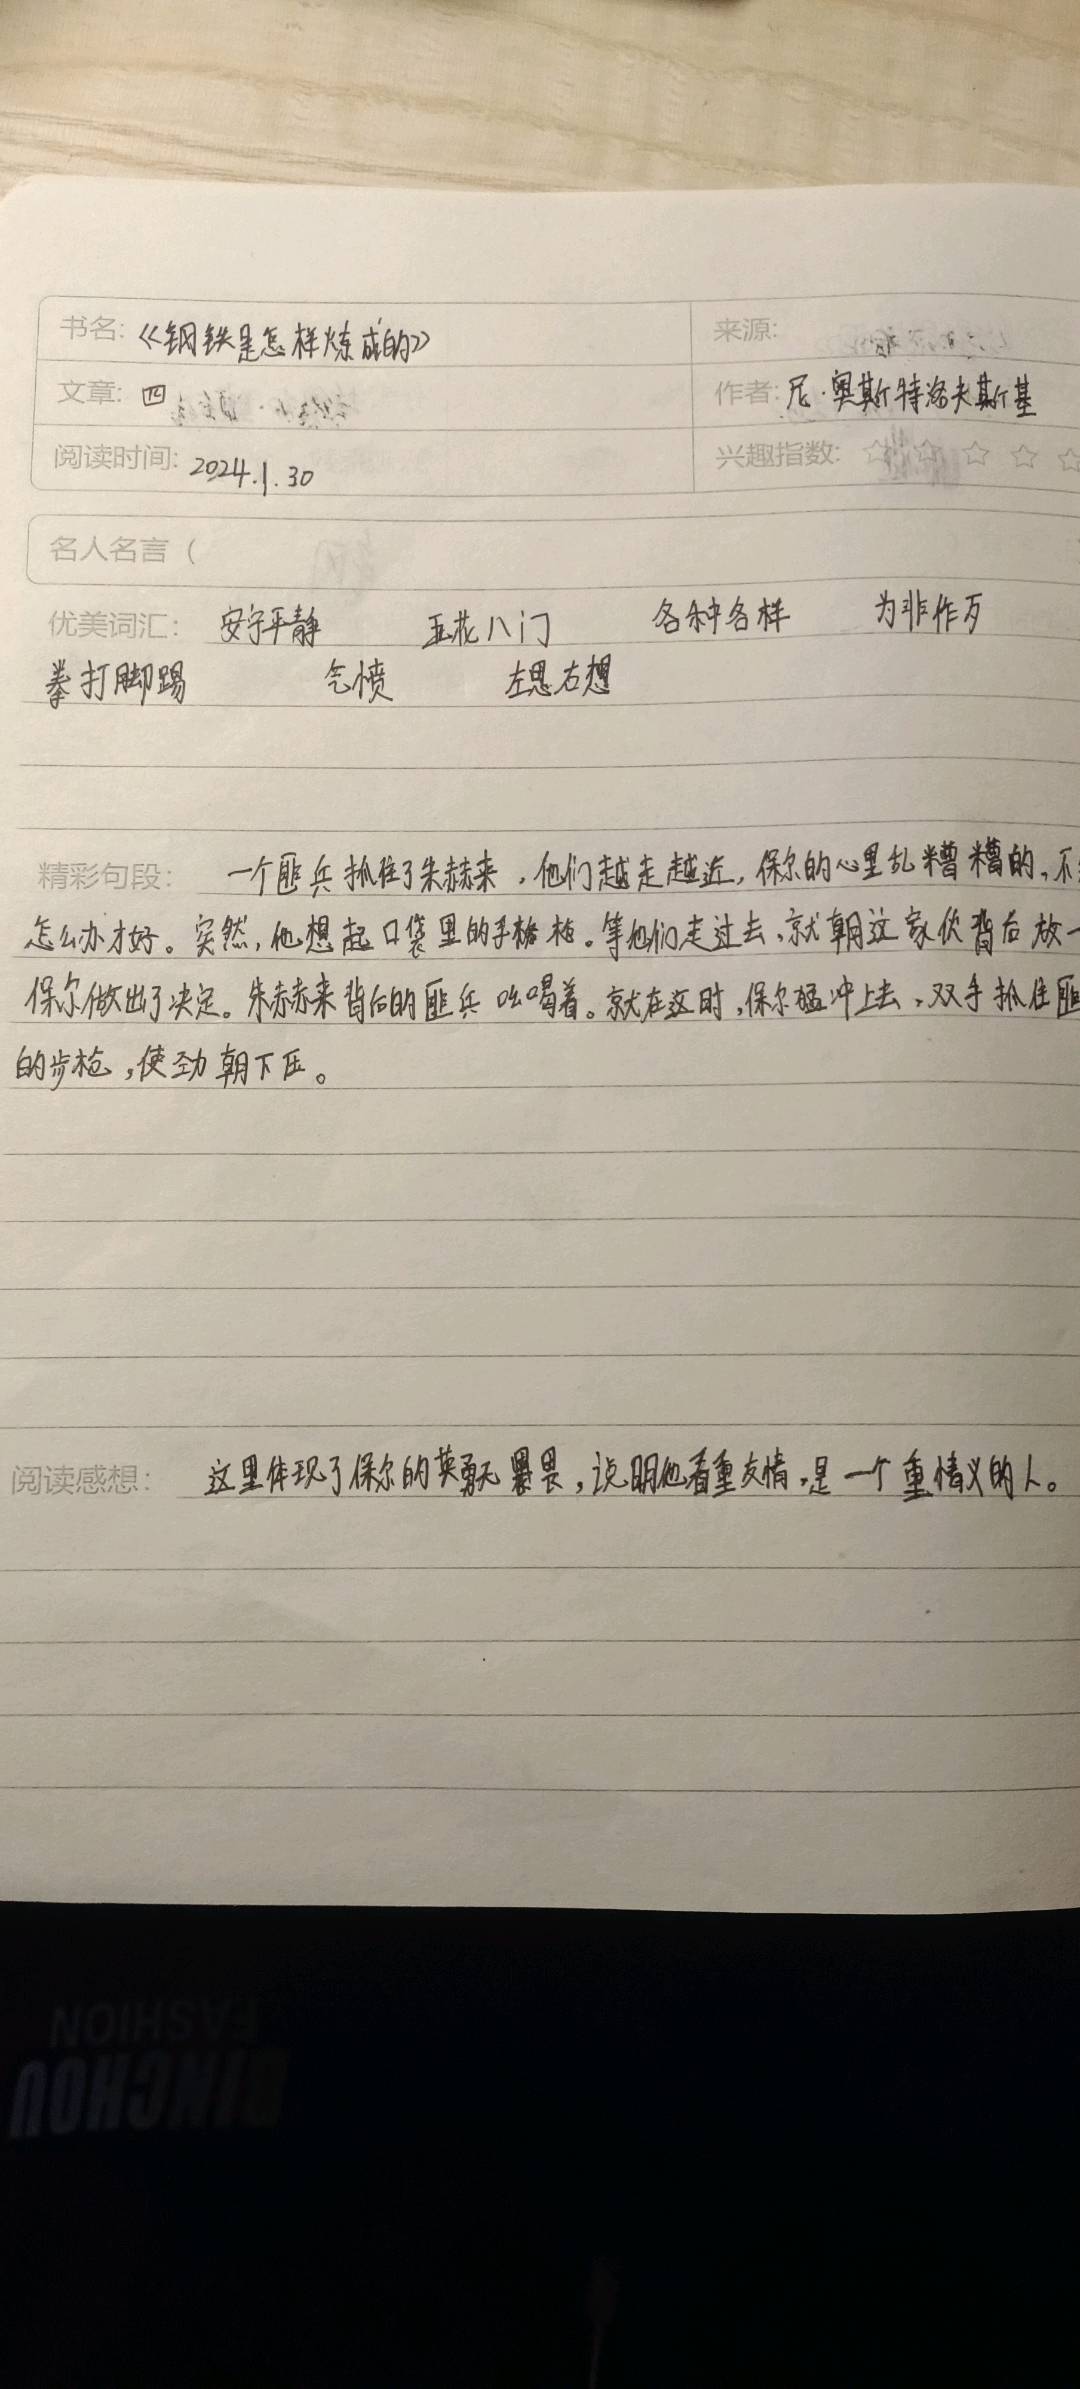 书名: 《钢铁是怎样炼成的》 来源:
文章: 四 作者: 尼·奥斯特洛夫斯基
阅读时间: 2024.1.30 兴趣指数: ☆ ☆ ☆ ☆ ☆
名人名言 (
优美词汇: 安宁平静 五花八门 各种各样 为非作歹
拳打脚踢 气愤 左思右想
精彩句段: 一个匪兵抓住了朱赫来，他们越走越近，保尔的心里乱糟糟的，不
怎么办才好。突然，他想起口袋里的手枪。等他们走过去，就朝这家伙背后放一
保尔做出了决定。朱赫来背后的匪兵吆喝着。就在这时，保尔猛冲上去，双手抓住匪
的步枪，使劲朝下压。
阅读感想: 这里体现了保尔的英勇无畏，说明他看重友情，是一个重情义的人。
FASHION
BINCHOU